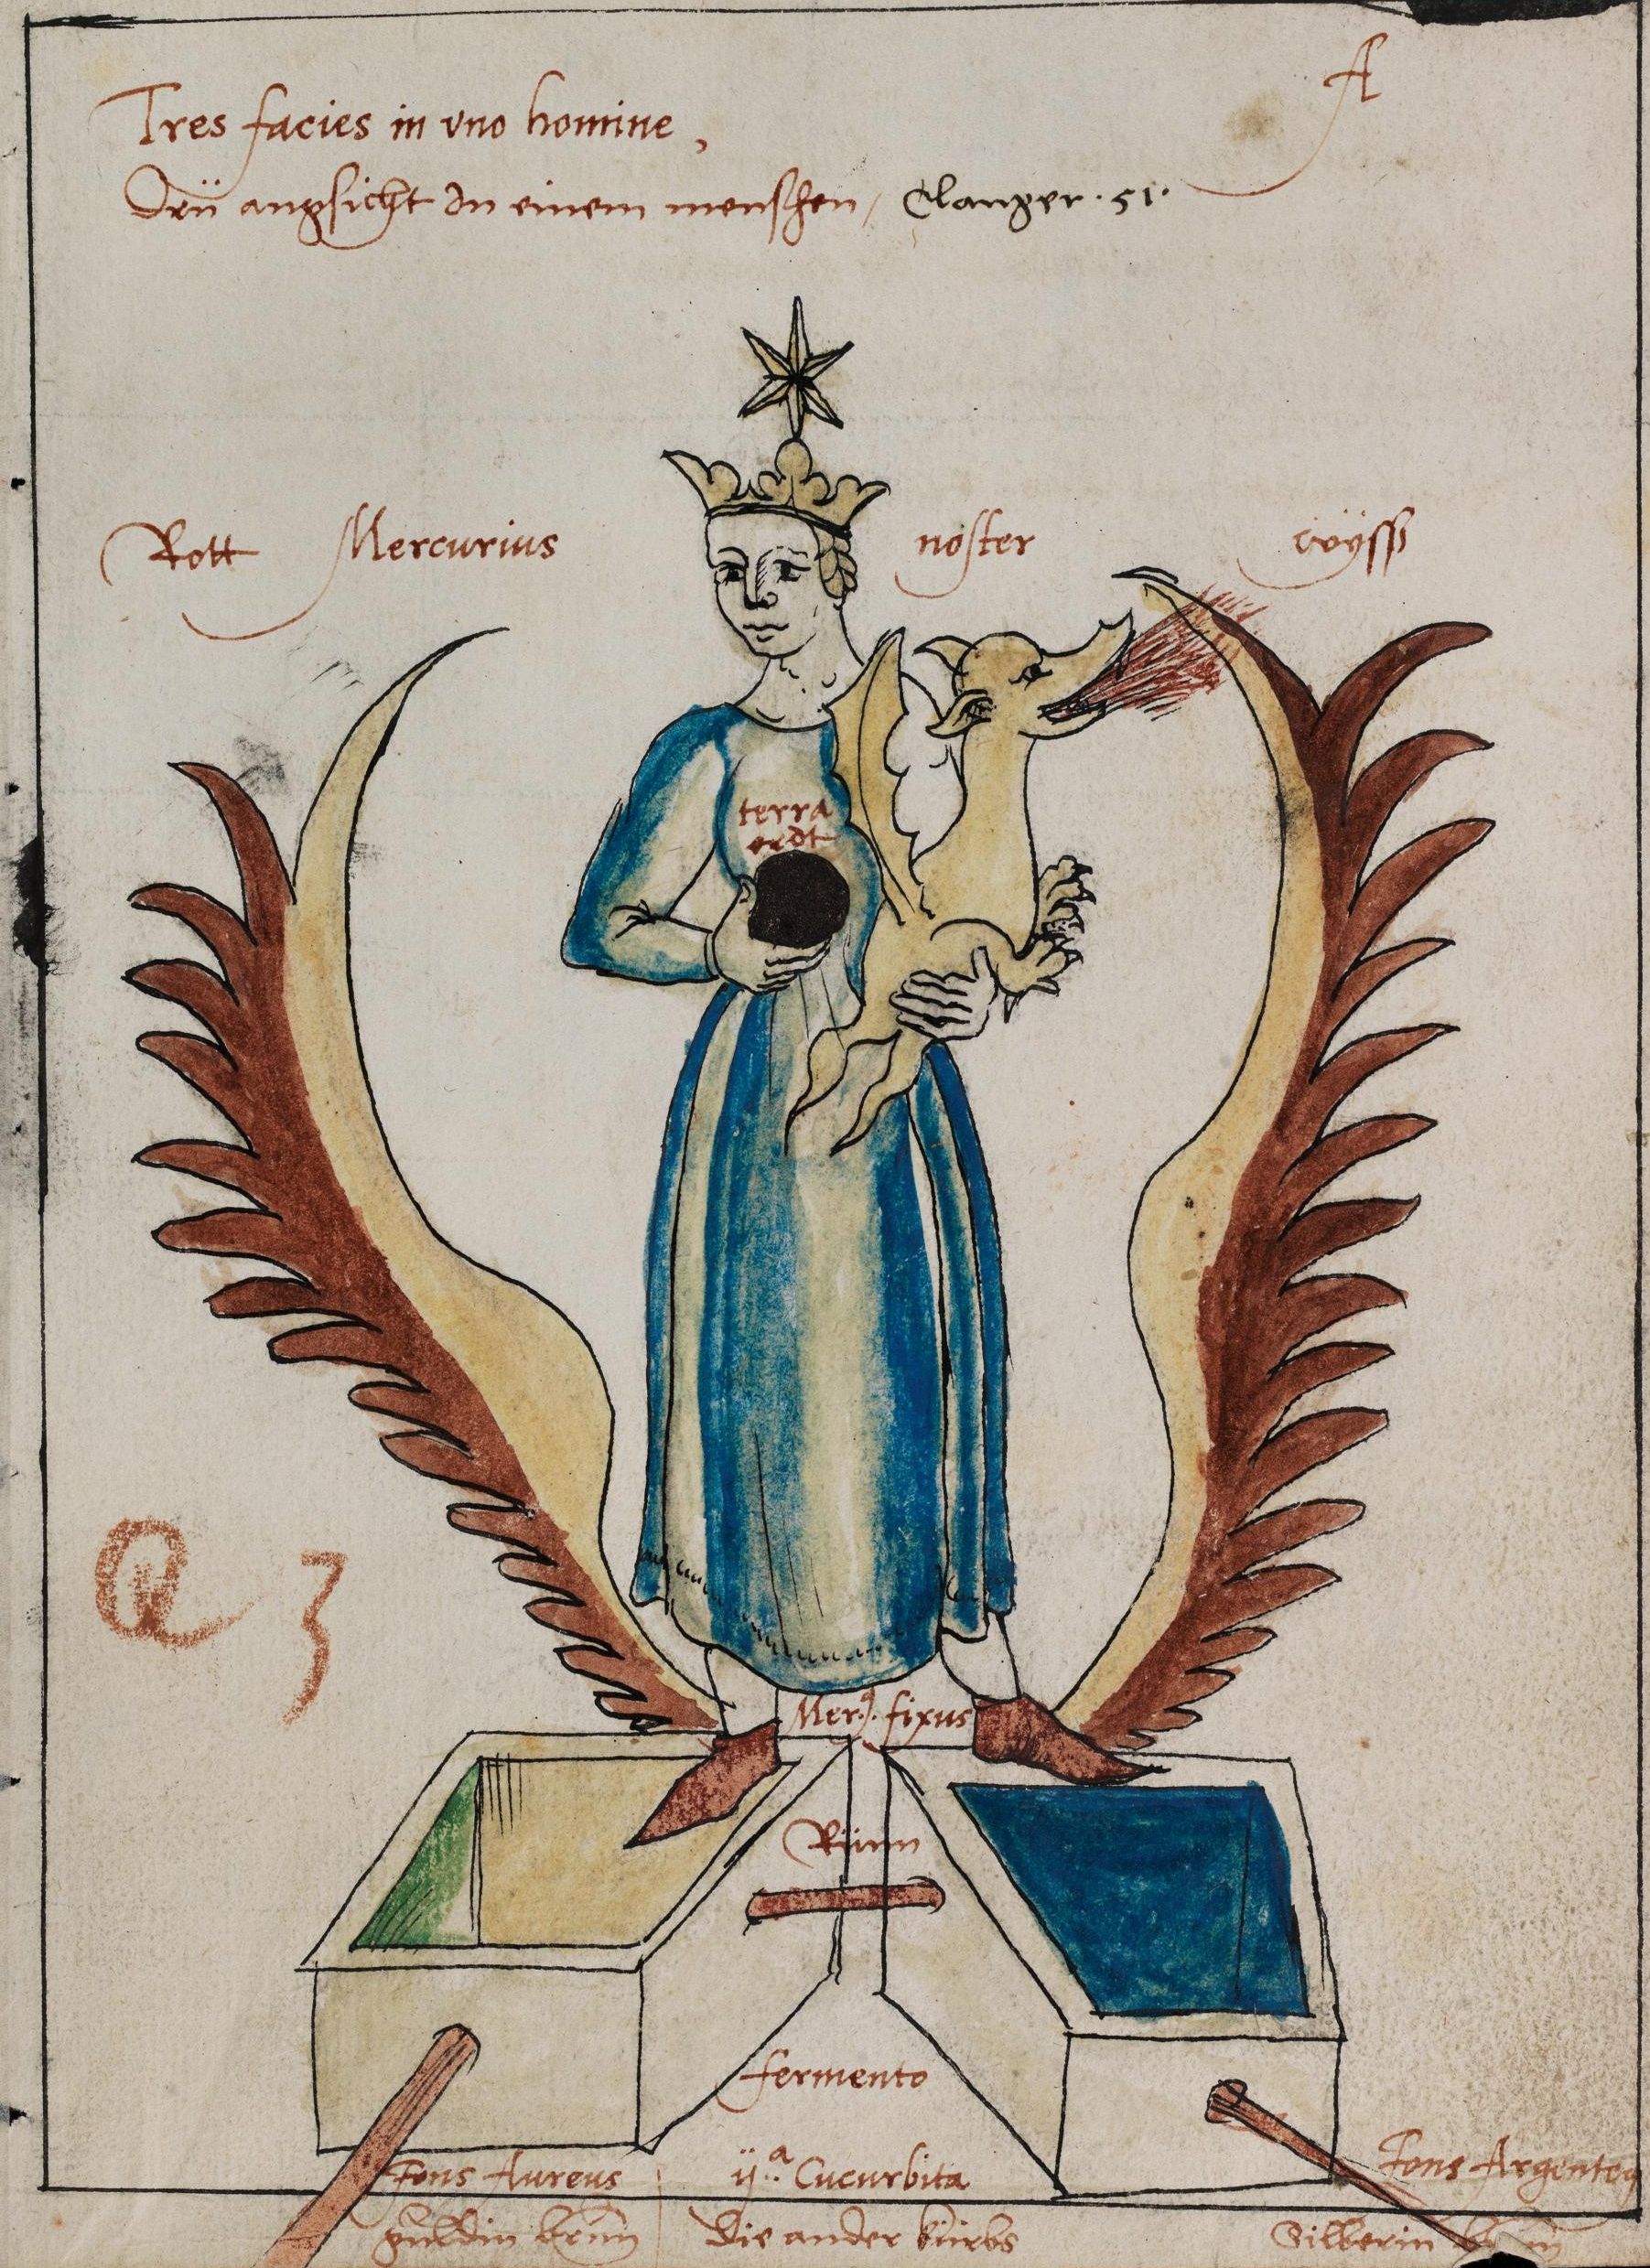 A
Tres facies in vno homine,
Drü angsicht In einem menschen / Clanger. 51.
Rott Mercurius noster wÿss
terra
erdt
Q 3
Mer. fixus
Rünn
fermento
Fons Aureus ij.a Cucurbita Fons Argenteq
guldin brun Die ander kürbs Silberin